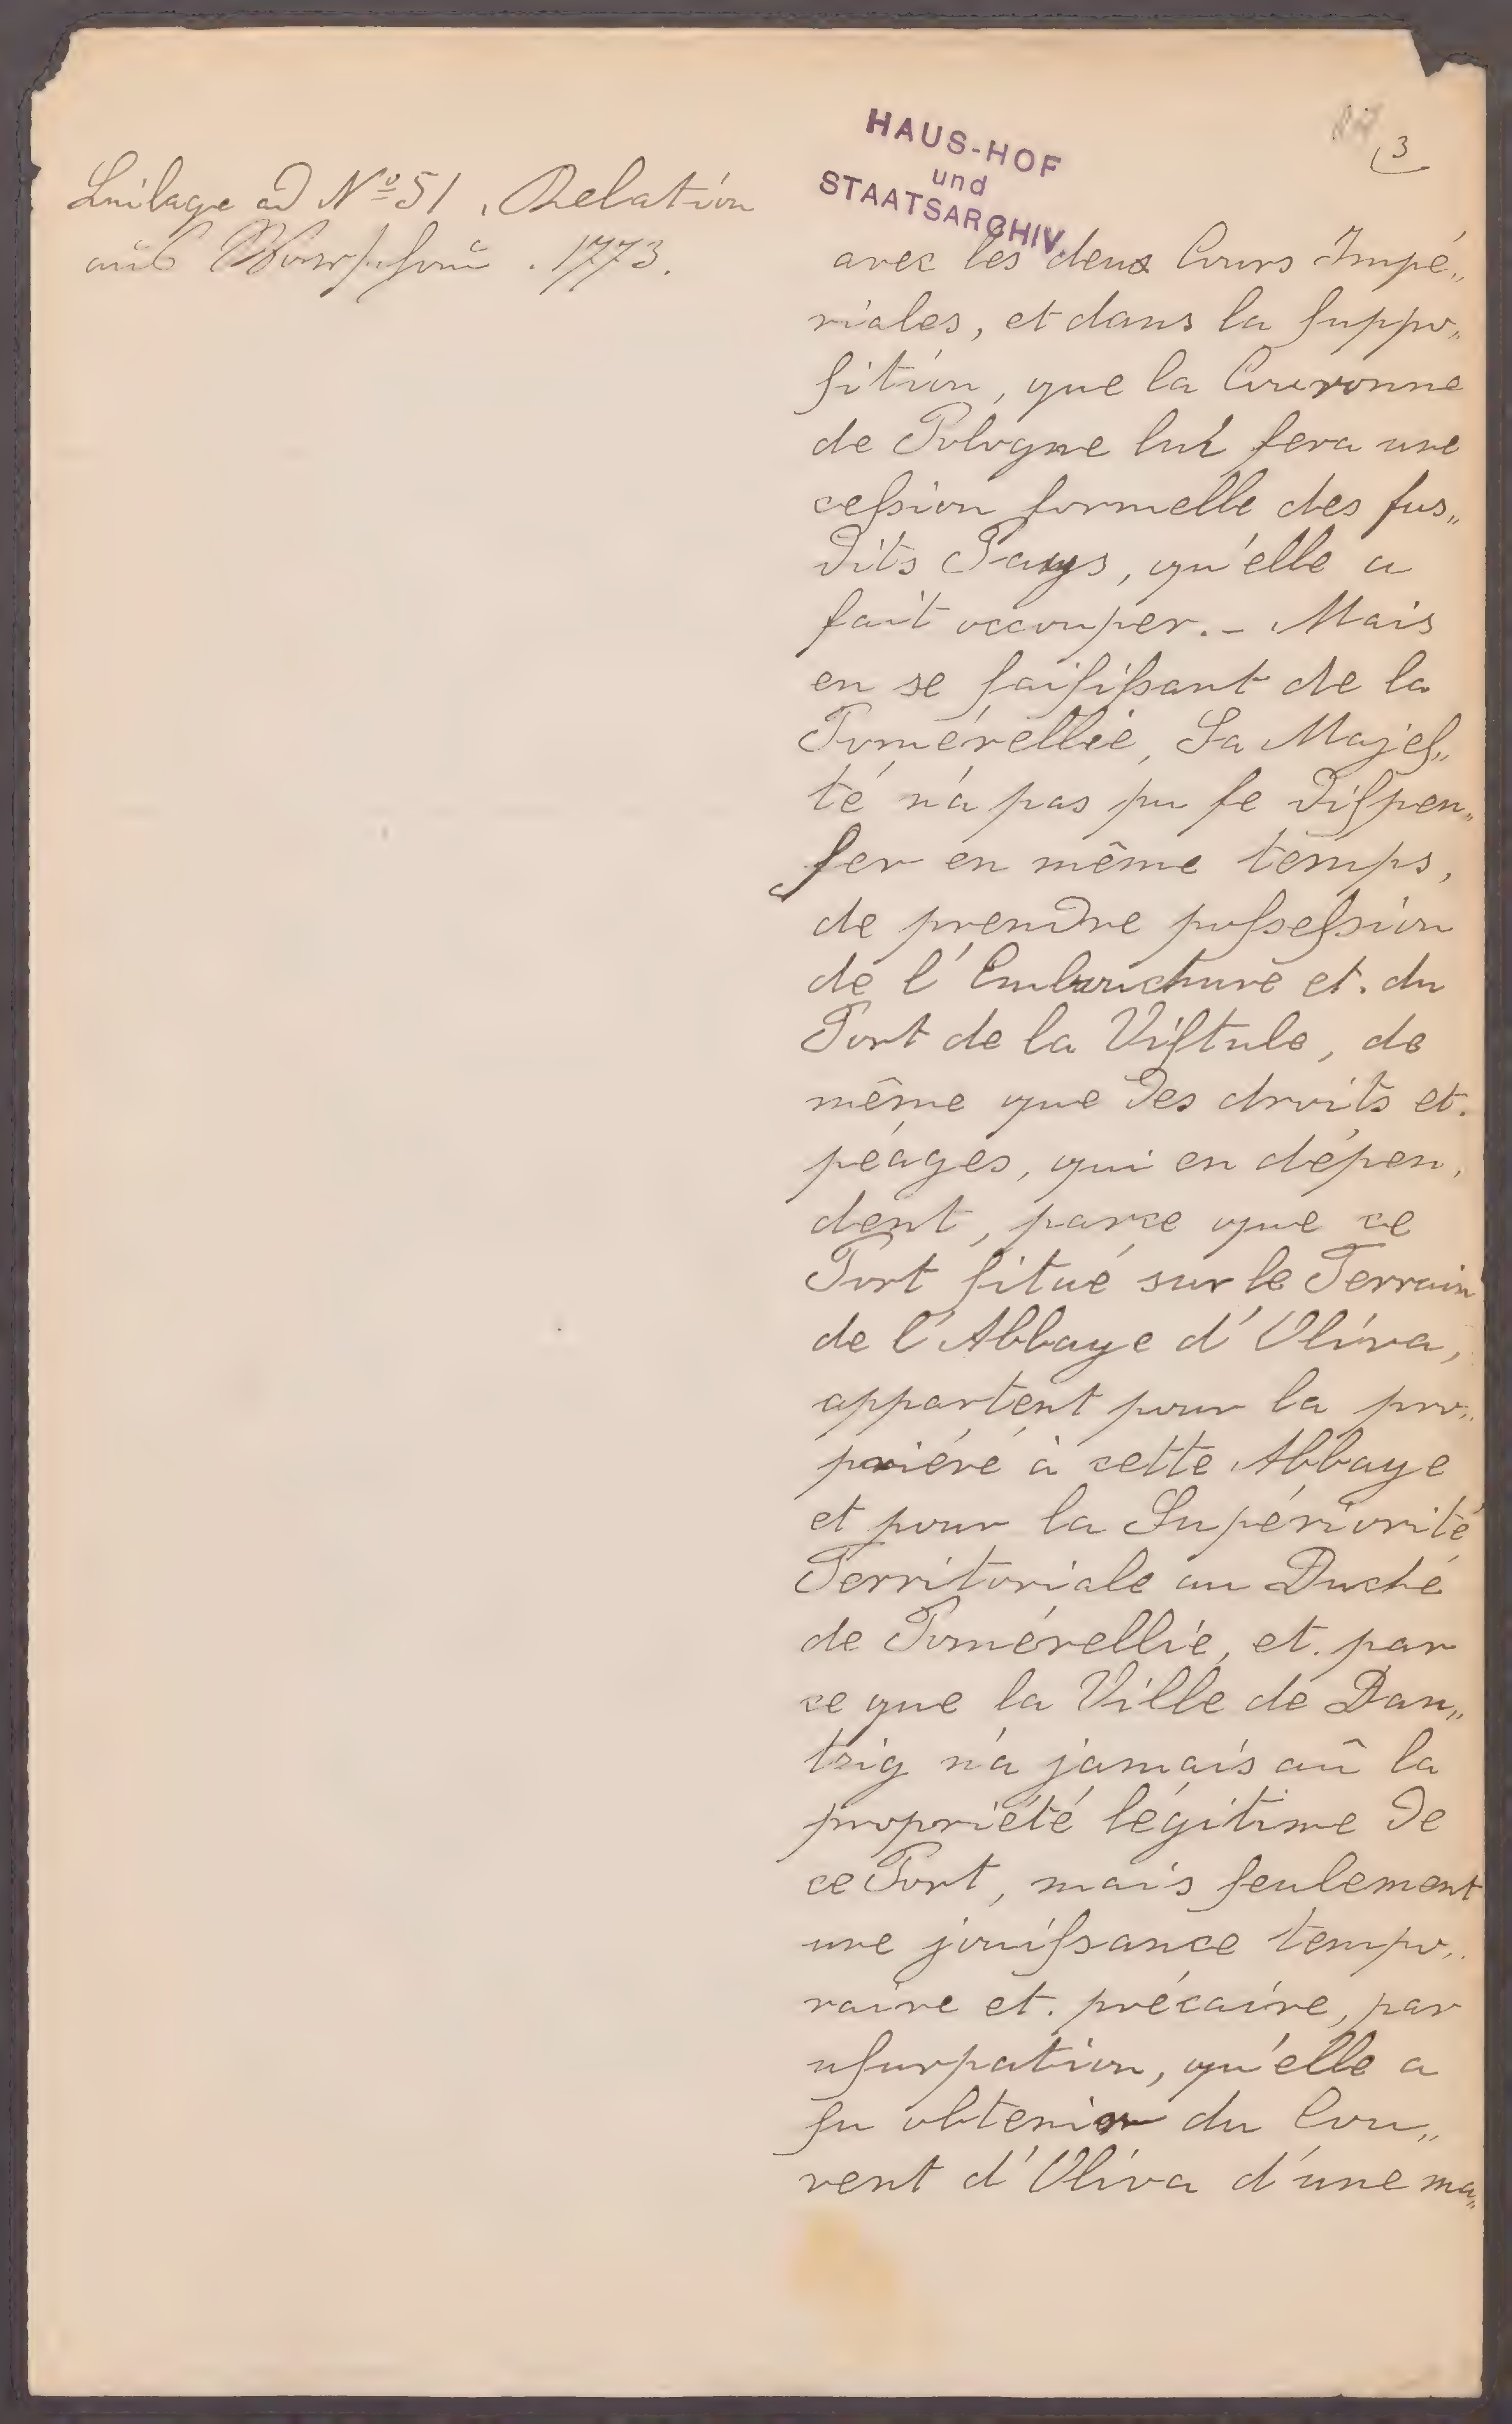 3
HAUS-HOF
und
STAATSARCHIV
Beilage ad Nº 51, Relation
aus Warschau . 1773.
avec les deux Cours Impé„
riales, et dans la suppo„
sition, que la Couronne
de Pologne lui fera une
cession formelle des sus„
dits Pays, qu'elle a
fait occouper. - Mais
en se saisissant de la
Pomérellie, Sa Majes„
té n'a pas pu se dispen„
ser en même temps,
de prendre possession
de l'Embouchure et. du
Port de la Vistule, de
même que des droits et.
péages, qui en dépen„
dent, parce que ce
Port situé sur le Terrain
de l'Abbaye d'Oliva,
appartent pour la pro„
priéré à cette Abbaye
et pour la Supériorité
Territoriale au Duché
de Pomérellie, et. par
ce que la Ville de Dan„
tzig n'a jamais aû la
propriété légitime de
ce Port, mais seulement
une jouissance tempo„
raire et. précaire, par
usurpation, qu'elle a
su obtenir du Cou„
vent d'Oliva d'une ma„